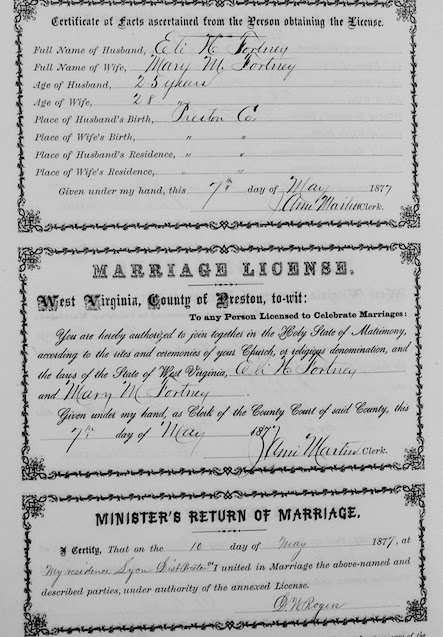 Certificate of Facts ascertained from the Person obtaining the License.
Full Name of Husband, Eli H Fortney
Full Name of Wife, Mary M. Fortney
Age of Husband, 25 years
Age of Wife, 28 "
Place of Husband's Birth, Preston Co.
Place of Wife's Birth, " "
Place of Husband's Residence, " "
Place of Wife's Residence, " "
Given under my hand, this 7th day of May 1877
Martin Clerk.
MARRIAGE LICENSE.
West Virginia, County of Preston, to-wit:
To any Person Licensed to Celebrate Marriages:
You are hereby authorized to join together in the Holy State of Matrimony,
according to the rites and ceremonies of your Church, or religious denomination, and
the laws of the State of West Virginia, Eli H Fortney
and Mary M Fortney
Given under my hand, as Clerk of the County Court of said County, this
7th day of May 1877
Martin Clerk.
MINISTER'S RETURN OF MARRIAGE.
I Certify, That on the 10 day of May 1877, at
My residence Lyon Dist I united in Marriage the above-named and
described parties, under authority of the annexed License.